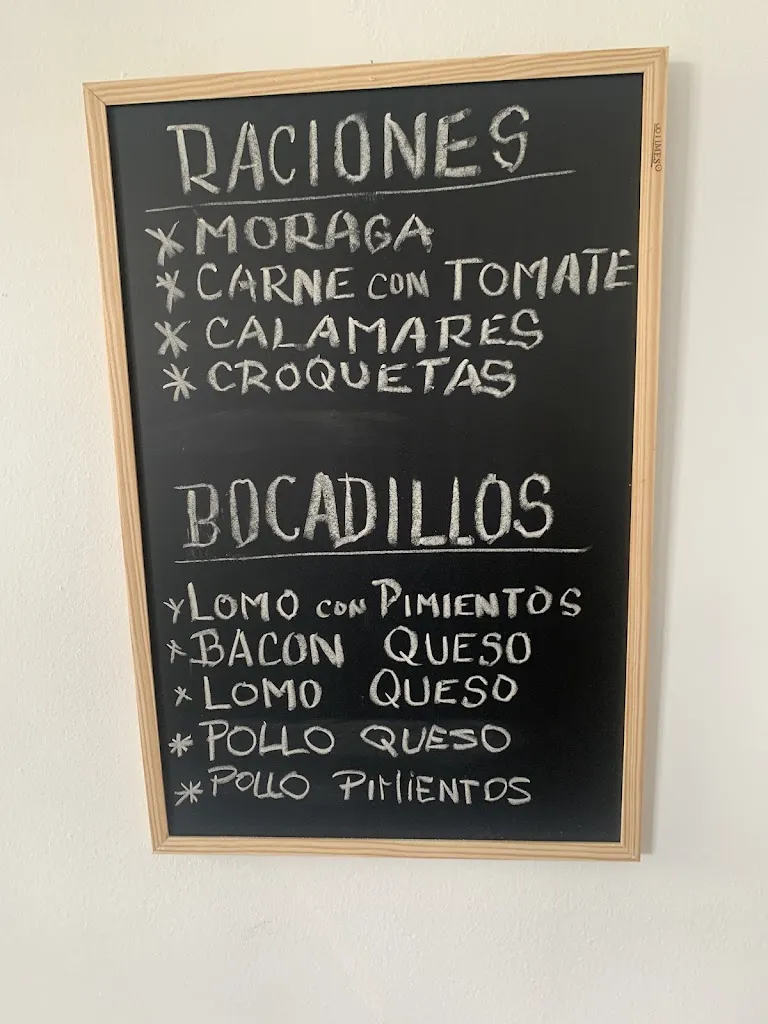 RACIONES
* MORAGA
* CARNE CON TOMATE
* CALAMARES
* CROQUETAS
BOCADILLOS
* LOMO CON PIMIENTOS
* BACON QUESO
* LOMO QUESO
* POLLO QUESO
* POLLO PIMIENTOS